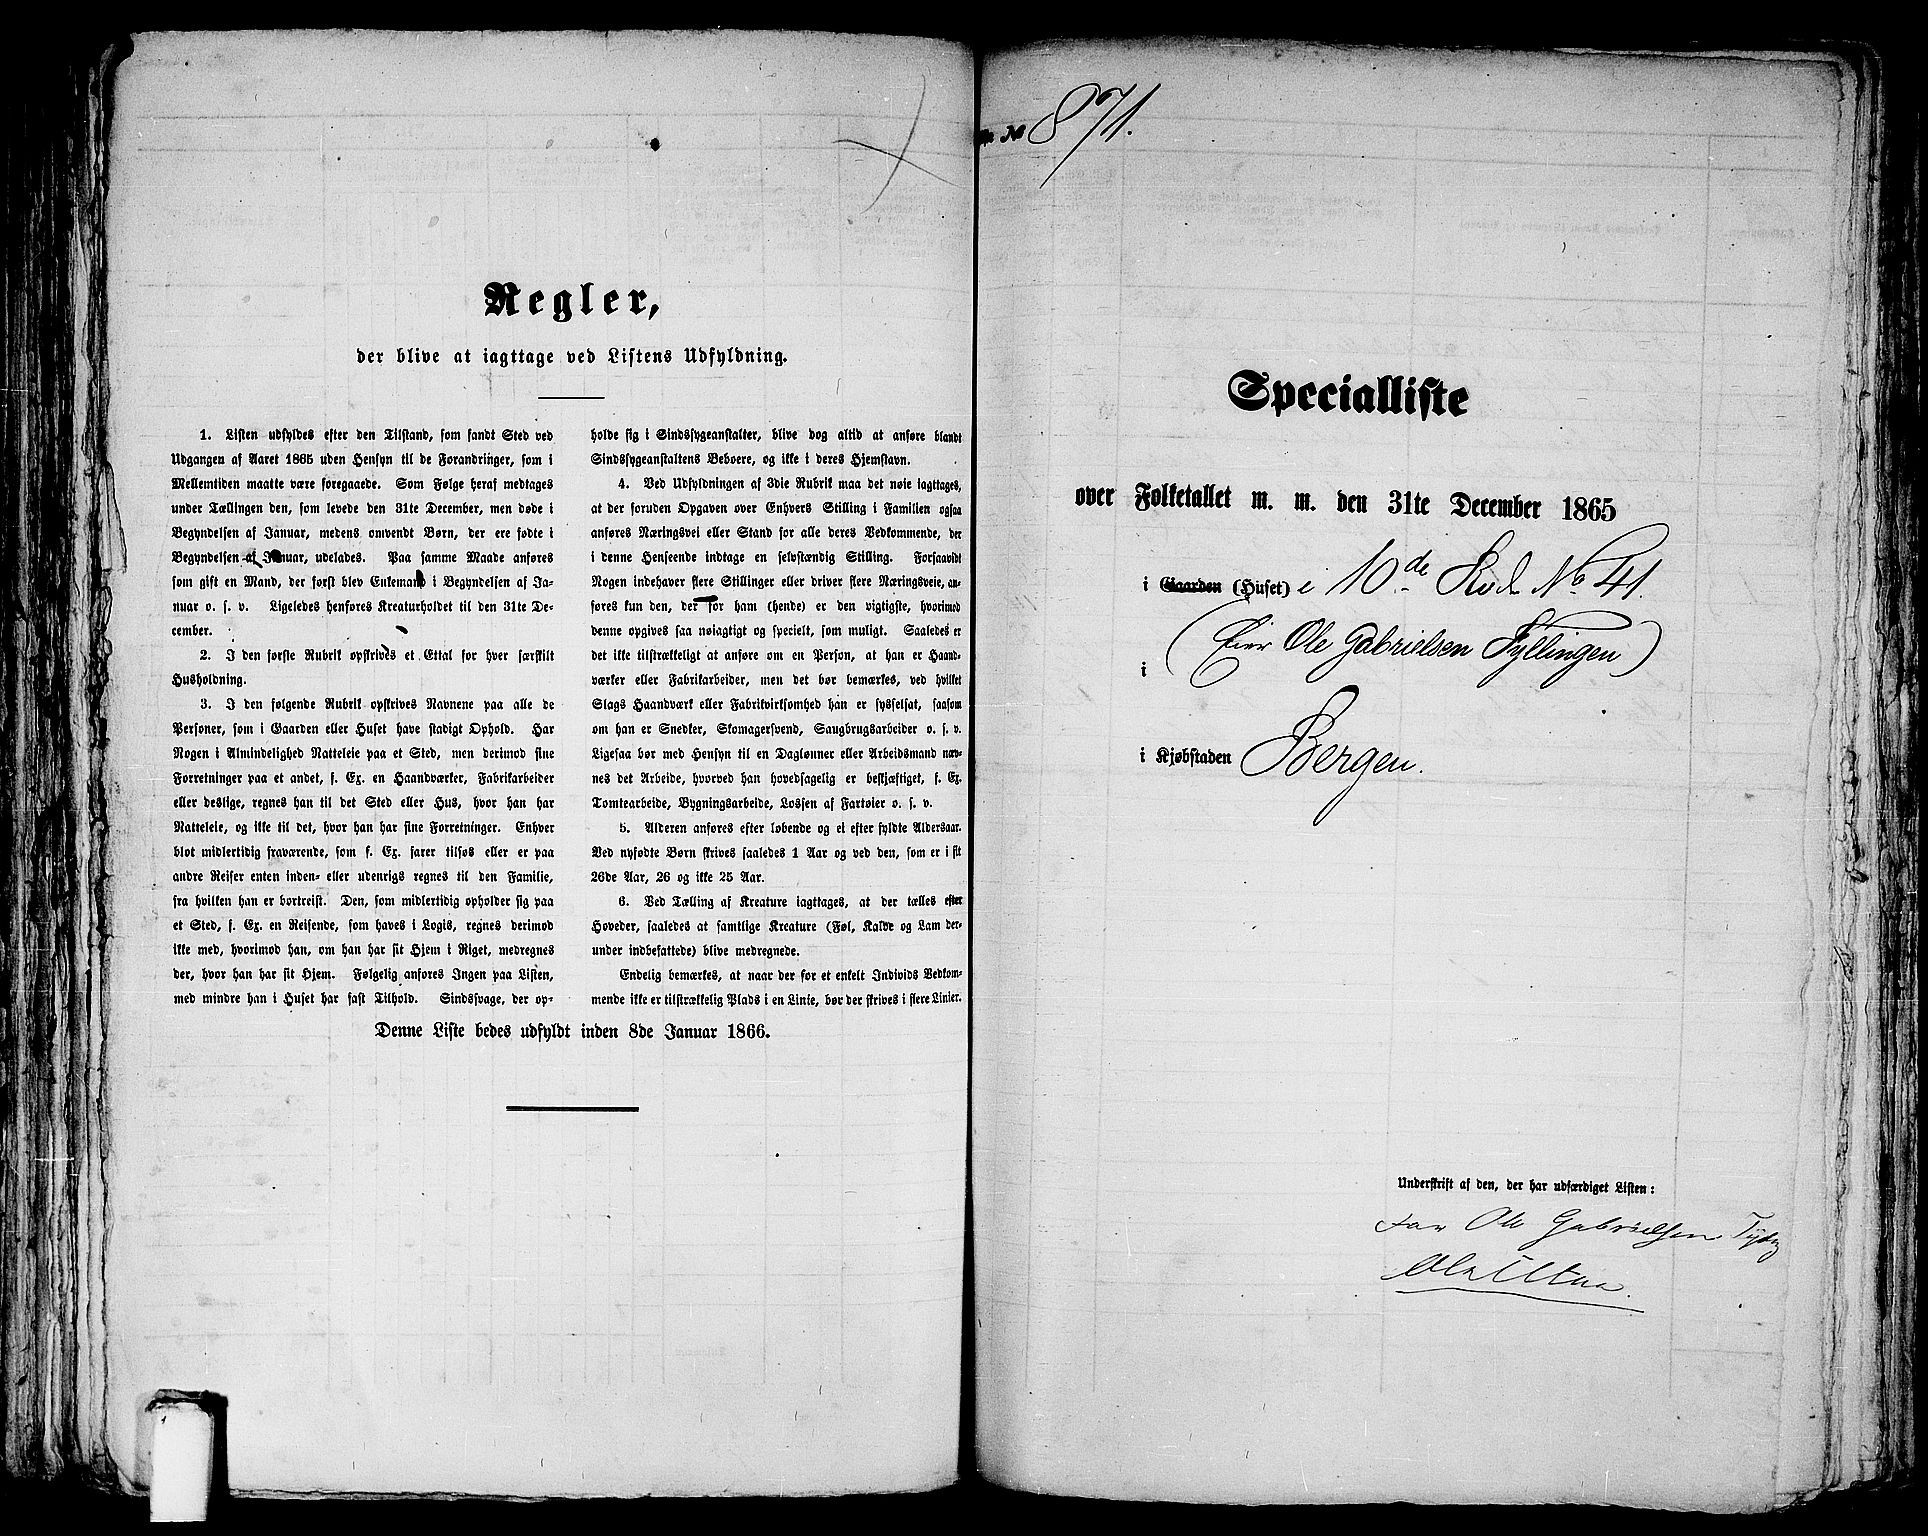 Regler,
der blive at iagttage ved Listens Udfyldning.
1. Listen udfyldes efter den Tilstand, som fandt Sted ved
Udgangen af Aaret 1865 uden Hensyn til de Forandringer, som i
Mellemtiden maatte være foregaaede. Som Følge heraf medtages
under Tællingen den, som levede den 31te December, men døde i
Begyndelsen af Januar, medens omvendt Børn, der ere fødte i
Begyndelsen af Januar, udelades. Paa samme Maade anføres
som gift en Mand, der først blev Enkemand i Begyndelsen af Ja-
nuar o. s. v. Ligeledes henføres Kreaturholdet til den 31te De-
cember.
2. I den første Rubrik opskrives et Ettal for hver særskilt
Husholdning.
3. I den følgende Rubrik opskrives Navnene paa alle de
Personer, som i Gaarden eller Huset have stadigt Ophold. Har
Nogen i Almindelighed Natteleie paa et Sted, men derimod sine
Forretninger paa et andet, f. Ex. en Haandværker, Fabrikarbeider
eller deslige, regnes han til det Sted eller Hus, hvor han har
Natteleie, og ikke til det, hvor han har sine Forretninger. Enhver
blot midlertidig fraværende, som f. Ex. farer tilsøs eller er paa
andre Reiser enten inden- eller udenrigs regnes til den Familie,
fra hvilken han er bortreist. Den, som midlertidig opholder sig paa
et Sted, f. Ex. en Reisende, som haves i Logis, regnes derimod
ikke med, hvorimod han, om han har sit Hjem i Riget, medregnes
der, hvor han har sit Hjem. Følgelig anføres Ingen paa Listen,
med mindre han i Huset har fast Tilhold. Sindssvage, der op-
holde sig i Sindssygeanstalter, blive dog altid at anføre blandt
Sindssygeanstaltens Beboere, og ikke i deres Hjemstavn.
4. Ved Udfyldningen af 3die Rubrik maa det nøie iagttages,
at der foruden Opgaven over Enhvers Stilling i Familien ogsaa
anføres Næringsvei eller Stand for alle deres Vedkommende, der
i denne Henseende indtage en selvstændig Stilling. Forsaavidt
Nogen indehaver flere Stillinger eller driver flere Næringsveie, an-
føres kun den, der for ham (hende) er den vigtigste, hvorimod
denne opgives saa nøiagtigt og specielt, som muligt. Saaledes er
det ikke tilstrækkeligt at anføre om en Person, at han er Haand-
værker eller Fabrikarbeider, men det bør bemærkes, ved hvilket
Slags Haandværk eller Fabrikvirksomhed han er sysselsat, saasom
om han er Snedker, Skomagersvend, Saugbrugsarbeider o. s. v.
Ligesaa bør med Hensyn til en Daglønner eller Arbeidsmand næv-
nes det Arbeide, hvorved han hovedsagelig er beskjæftiget, f. Ex.
Tomtearbeide, Bygningsarbeide, Lossen af Fartøier o. s. v.
5. Alderen anføres efter løbende og ei efter fyldte Aldersaar.
Ved nyfødte Børn skrives saaledes 1 Aar og ved den, som er i sit
26de Aar, 26 og ikke 25 Aar.
6. Ved Tælling af Kreature iagttages, at der tælles efter
Hoveder, saaledes at samtlige Kreature (Føl, Kalve og Lam der-
under indbefattede) blive medregnede.
Endelig bemærkes, at naar der for et enkelt Individs Vedkom-
mende ikke er tilstrækkelig Plads i en Linie, bør der skrives i flere Linier.
Denne Liste bedes udfyldt inden 8de Januar 1866.
No 871.
Specialliste
over Folketallet m. m. den 31te December 1865
i Gaarden (Huset) i 10de Rode No 41.
i (Eier Ole Gabrielsen Tyllingen)
i Kjøbstaden Bergen.
Underskrift af den, der har udfærdiget Listen:
for Ole Gabrielsen